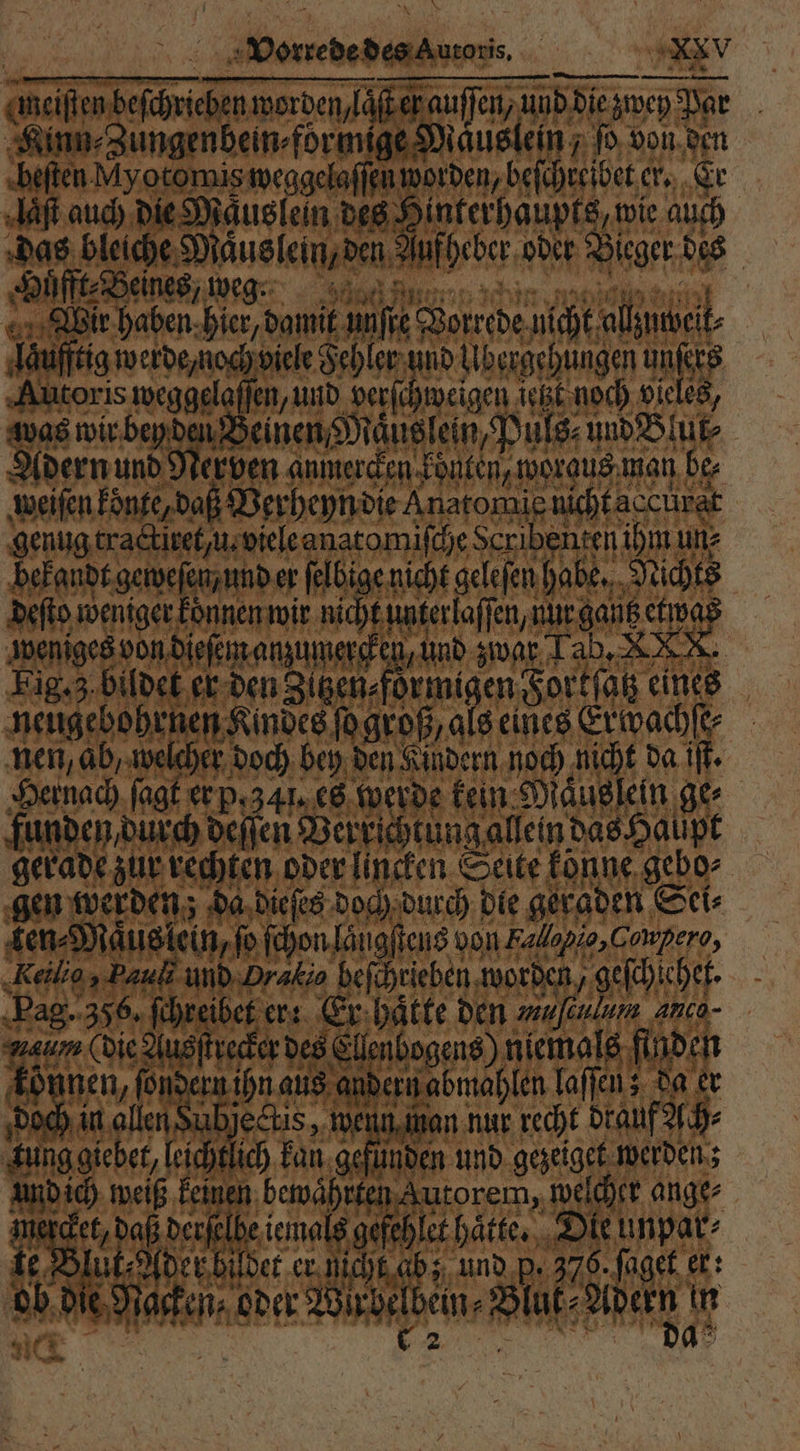 Vorrede des Autoris. XXV
meiſten beſchrieben worden, låſt er auſſen, und die zwey Par
Kinn-Zungenbein-förmige Måuslein, ſo von den
beſten Myotomis weggelaſſen worden, beſchreibet er. Er
låſt auch die Måuslein des Hinterhaupts, wie auch
das bleiche Måuslein, den Aufheber oder Bieger des
Hüfft-Beines, weg.
Wir haben hier, damit unſre Vorrede nicht allzuweit-
läufftig werde, noch viele Fehler und Ubergehungen unſers
Autoris weggelaſſen, und verſchweigen ietzt noch vieles,
was wir bey den Beinen, Måuslein, Puls- und Blut-
Adern und Nerven anmercken könten, woraus man be-
weiſen könte, daß Verheyn die Anatomie nicht accurat
genug tractiret, u. viele anatomiſche Scribenten ihm un-
bekandt geweſen, und er ſelbige nicht geleſen habe. Nichts
deſto weniger können wir nicht unterlaſſen, nur gantz etwas
weniges von dieſem anzumercken, und zwar Tab. XXX.
Fig. 3. bildet er den Zitzen-förmigen Fortſatz eines
neugebohrnen Kindes ſo groß, als eines Erwachſe-
nen, ab, welcher doch bey den Kindern noch nicht da iſt.
Hernach ſagt er p. 341. es werde kein Måuslein ge-
funden, durch deſſen Verrichtung allein das Haupt
gerade zur rechten oder lincken Seite könne gebo-
gen werden; da dieſes doch durch die geraden Sei-
ten-Måuslein, ſo ſchon långſtens von Fallopio, Cowpero,
Keilio, Pauli und Drakio beſchrieben worden, geſchiehet.
Pag. 356. ſchreibet er: Er hätte den muſculum anco-
næum (die Ausſtrecker des Ellenbogens) niemals finden
können, ſondern ihn aus andern abmahlen laſſen; da er
doch in allen Subjectis, wenn man nur recht drauf Ach-
tung giebet, leichtlich kan gefunden und gezeiget werden;
und ich weiß keinen bewåhrten Autorem, welcher ange-
mercket, daß derſelbe iemals gefehlet håtte. Die unpar-
te Blut-Ader bildet er nicht ab; und p. 376. ſaget er:
ob die Nacken- oder Wirbelbein-Blut-Adern in
c 2 da